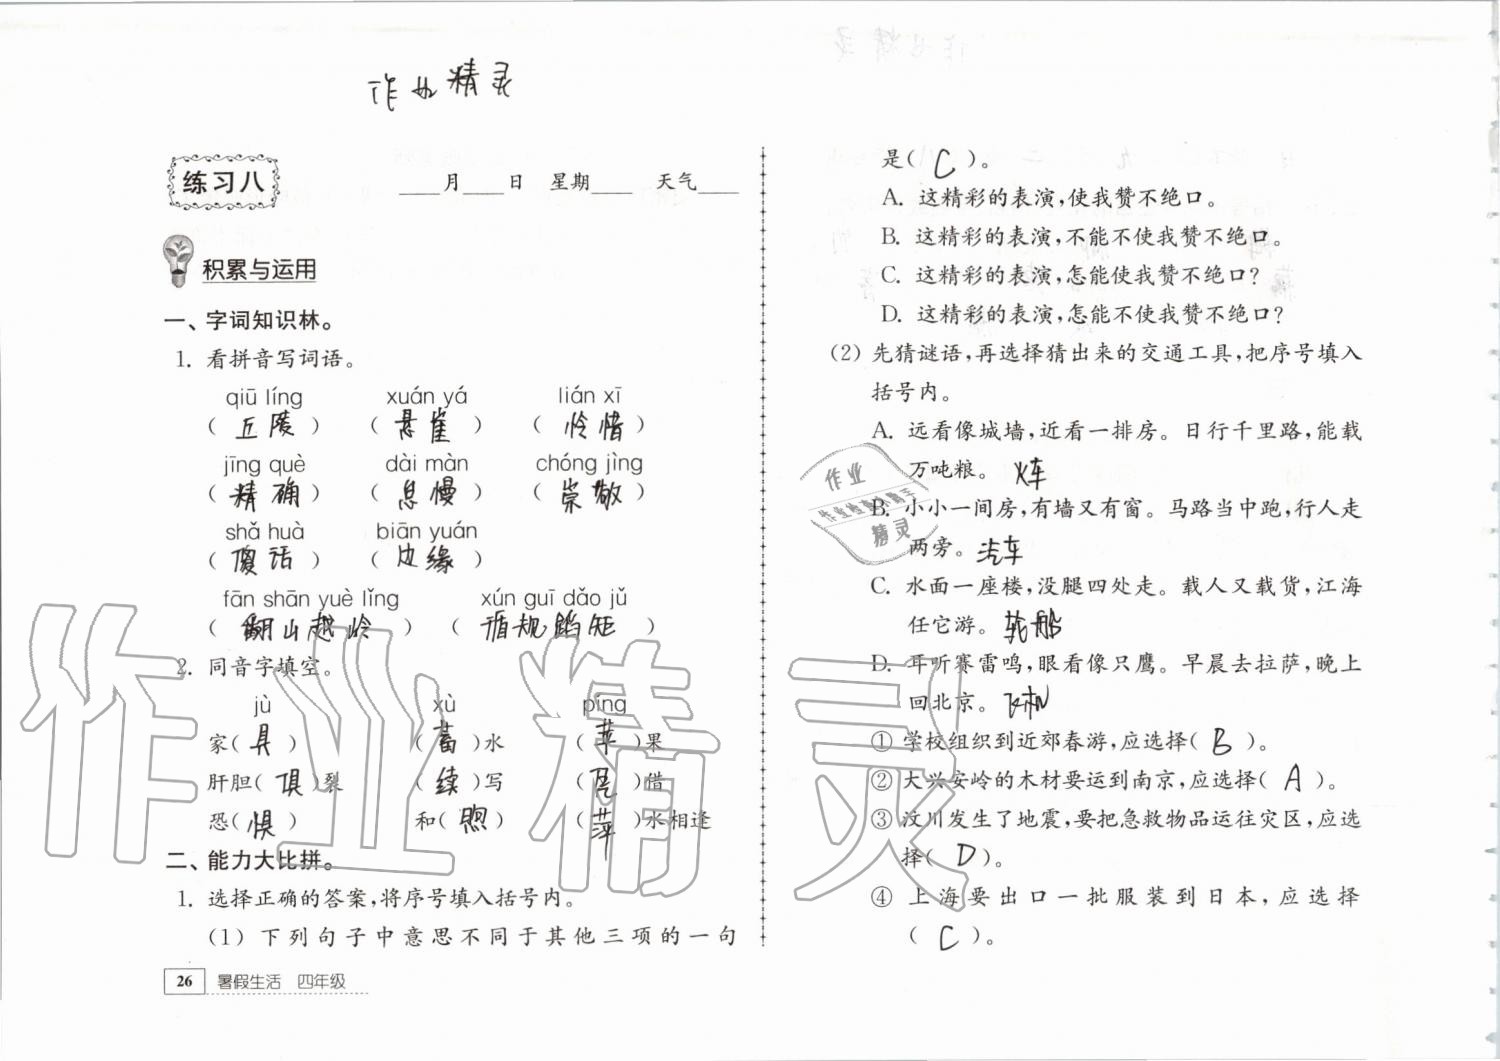 作业精灵
练习八 ____月____日 星期____ 天气____
积累与运用
一、字词知识林。
1. 看拼音写词语。
qiū líng xuán yá lián xī
( 丘陵 ) ( 悬崖 ) ( 怜惜 )
jīng què dài màn chóng jìng
( 精确 ) ( 怠慢 ) ( 崇敬 )
shǎ huà biān yuán
( 傻话 ) ( 边缘 )
fān shān yuè lǐng xún guī dǎo jǔ
( 翻山越岭 ) ( 循规蹈矩 )
2. 同音字填空。
jù xù píng
家( 具 ) ( 蓄 )水 ( 苹 )果
肝胆( 俱 )裂 ( 续 )写 ( 凭 )借
恐( 惧 ) 和( 煦 ) ( 萍 )水相逢
二、能力大比拼。
1. 选择正确的答案,将序号填入括号内。
(1) 下列句子中意思不同于其他三项的一句
26 暑假生活 四年级
是( C )。
A. 这精彩的表演,使我赞不绝口。
B. 这精彩的表演,不能不使我赞不绝口。
C. 这精彩的表演,怎能使我赞不绝口?
D. 这精彩的表演,怎能不使我赞不绝口?
(2) 先猜谜语,再选择猜出来的交通工具,把序号填入
括号内。
A. 远看像城墙,近看一排房。日行千里路,能载
万吨粮。 火车
B. 小小一间房,有墙又有窗。马路当中跑,行人走
两旁。 汽车
C. 水面一座楼,没腿四处走。载人又载货,江海
任它游。 轮船
D. 耳听赛雷鸣,眼看像只鹰。早晨去拉萨,晚上
回北京。 飞机
① 学校组织到近郊春游,应选择( B )。
② 大兴安岭的木材要运到南京,应选择( A )。
③ 汶川发生了地震,要把急救物品运往灾区,应选
择( D )。
④ 上海要出口一批服装到日本,应选择
( C )。
作业
精灵
作业精灵